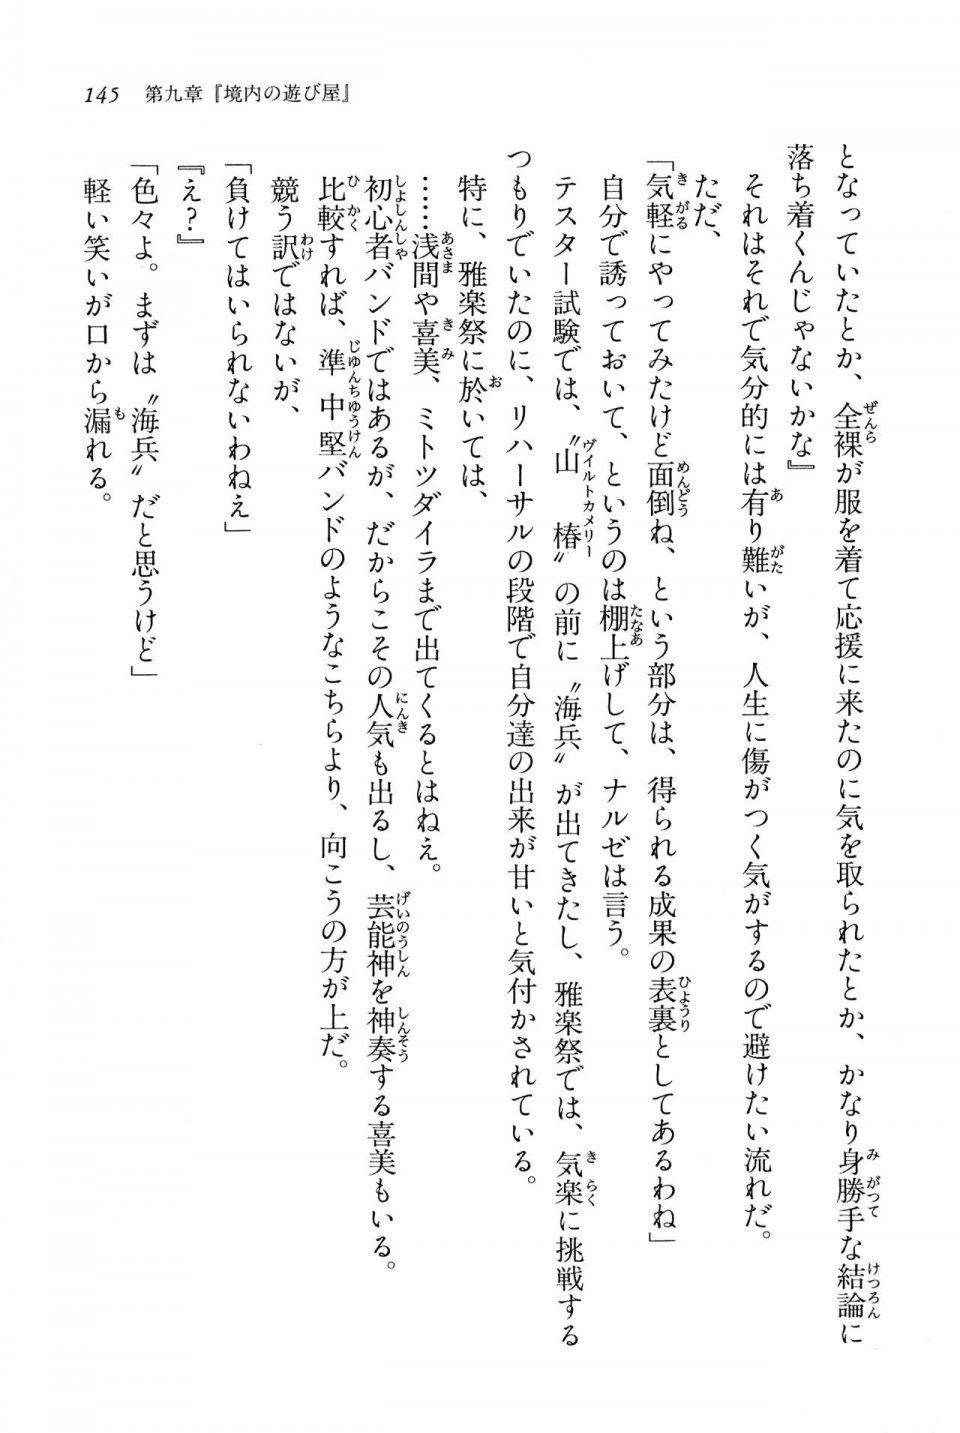 145　第九章『境内の遊び屋』
となっていたとか、全裸が服を着て応援に来たのに気を取られたとか、かなり身勝手な結論に
落ち着くんじゃないかな』
それはそれで気分的には有り難いが、人生に傷がつく気がするので避けたい流れだ。
ただ、
「気軽にやってみたけど面倒ね、という部分は、得られる成果の表裏としてあるわね」
自分で誘っておいて、というのは棚上げして、ナルゼは言う。
テスター試験では、〝山椿〟の前に〝海兵〟が出てきたし、雅楽祭では、気楽に挑戦する
つもりでいたのに、リハーサルの段階で自分達の出来が甘いと気付かされている。
特に、雅楽祭に於いては、
……浅間や喜美、ミトツダイラまで出てくるとはねえ。
初心者バンドではあるが、だからこその人気も出るし、芸能神を神奏する喜美もいる。
比較すれば、準中堅バンドのようなこちらより、向こうの方が上だ。
競う訳ではないが、
「負けてはいられないわねえ」
『え？』
「色々よ。まずは〝海兵〟だと思うけど」
軽い笑いが口から漏れる。